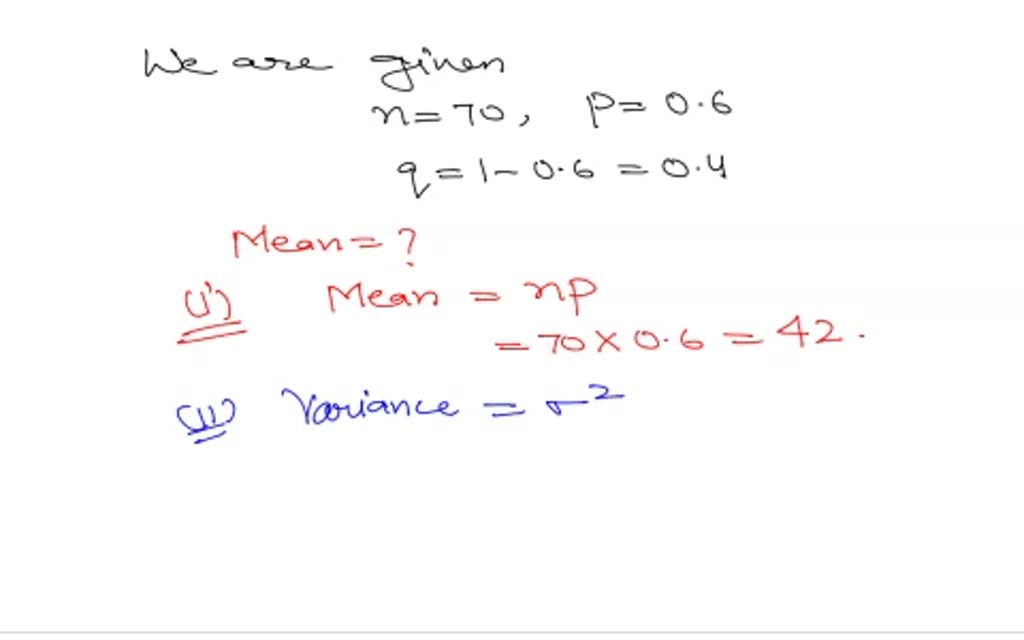 We are given
n = 70, p = 0.6
q = 1 - 0.6 = 0.4
Mean = ?
(i) Mean = np
= 70 × 0.6 = 42.
(ii) Variance = σ²